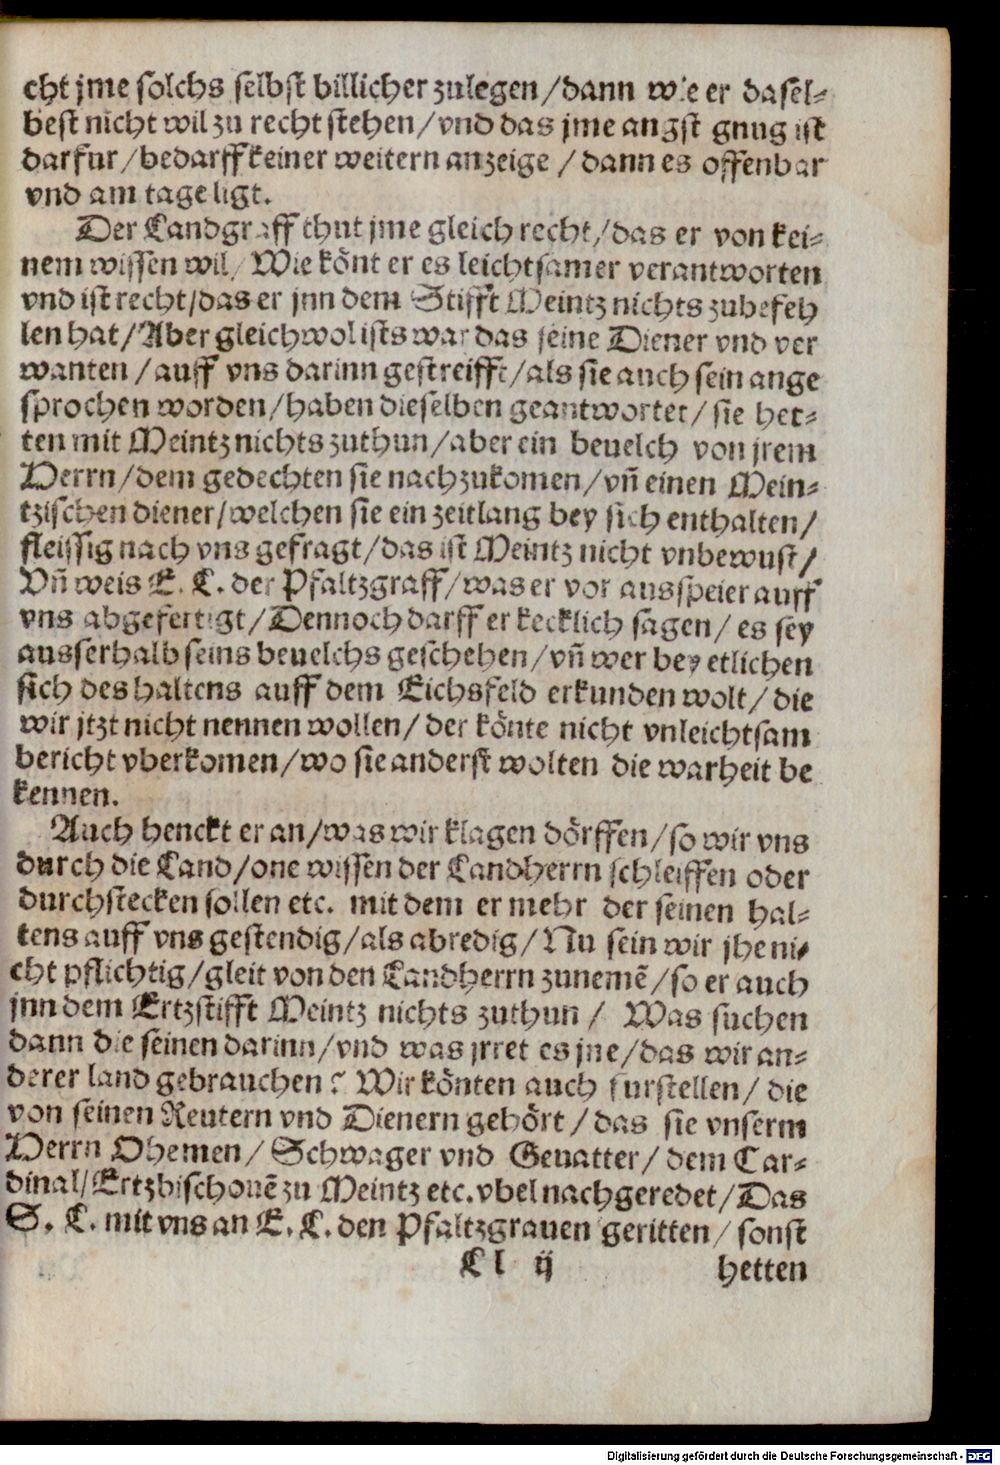 cht jme solchs selbst billicher zulegen/dann wie er dasel-
best nicht wil zu recht stehen/vnd das jme angst gnug ist
darfur/bedarff keiner weitern anzeige/dann es offenbar
vnd am tage ligt.
Der Landgraff thut jme gleich recht/das er von kei-
nem wissen wil/Wie könt er es leichtsamer verantworten
vnd ist recht/das er jnn dem Stifft Meintz nichts zubefeh
len hat/Aber gleichwol ists war das seine Diener vnd ver
wanten/auff vns darinn gestreifft/als sie auch sein ange
sprochen worden/haben dieselben geantwortet/sie het-
ten mit Meintz nichts zuthun/aber ein beuelch von jrem
Herrn/dem gedechten sie nachzukomen/vñ einen Mein-
tzischen diener/welchen sie ein zeitlang bey sich enthalten/
fleissig nach vns gefragt/das ist Meintz nicht vnbewust/
Vñ weis E. L. der Pfaltzgraff/was er vor aus speier auff
vns abgefertigt/Dennoch darff er kecklich sagen/es sey
ausserhalb seins beuelchs geschehen/vñ wer bey etlichen
sich des haltens auff dem Eichsfeld erkunden wolt/die
wir jtzt nicht nennen wollen/der könte nicht vnleichtsam
bericht vberkomen/wo sie anderst wolten die warheit be
kennen.
Auch henckt er an/was wir klagen dörffen/so wir vns
durch die Land/one wissen der Landherrn schleiffen oder
durchstecken sollen etc. mit dem er mehr der seinen hal-
tens auff vns gestendig/als abredig/Nu sein wir jhe ni-
cht pflichtig/gleit von den Landherrn zunemẽ/so er auch
jnn dem Ertzstifft Meintz nichts zuthun/Was suchen
dann die seinen darinn/vnd was jrret es jne/das wir an-
derer land gebrauchen? Wir könten auch furstellen/die
von seinen Reutern vnd Dienern gehört/das sie vnserm
Herrn Ohemen/Schwager vnd Geuatter/dem Car-
dinal/Ertzbischouẽ zu Meintz etc. vbel nachgeredet/Das
S. L. mit vns an E. L. den Pfaltzgrauen geritten/sonst
Ll ij hetten
Digitalisierung gefördert durch die Deutsche Forschungsgemeinschaft - DFG